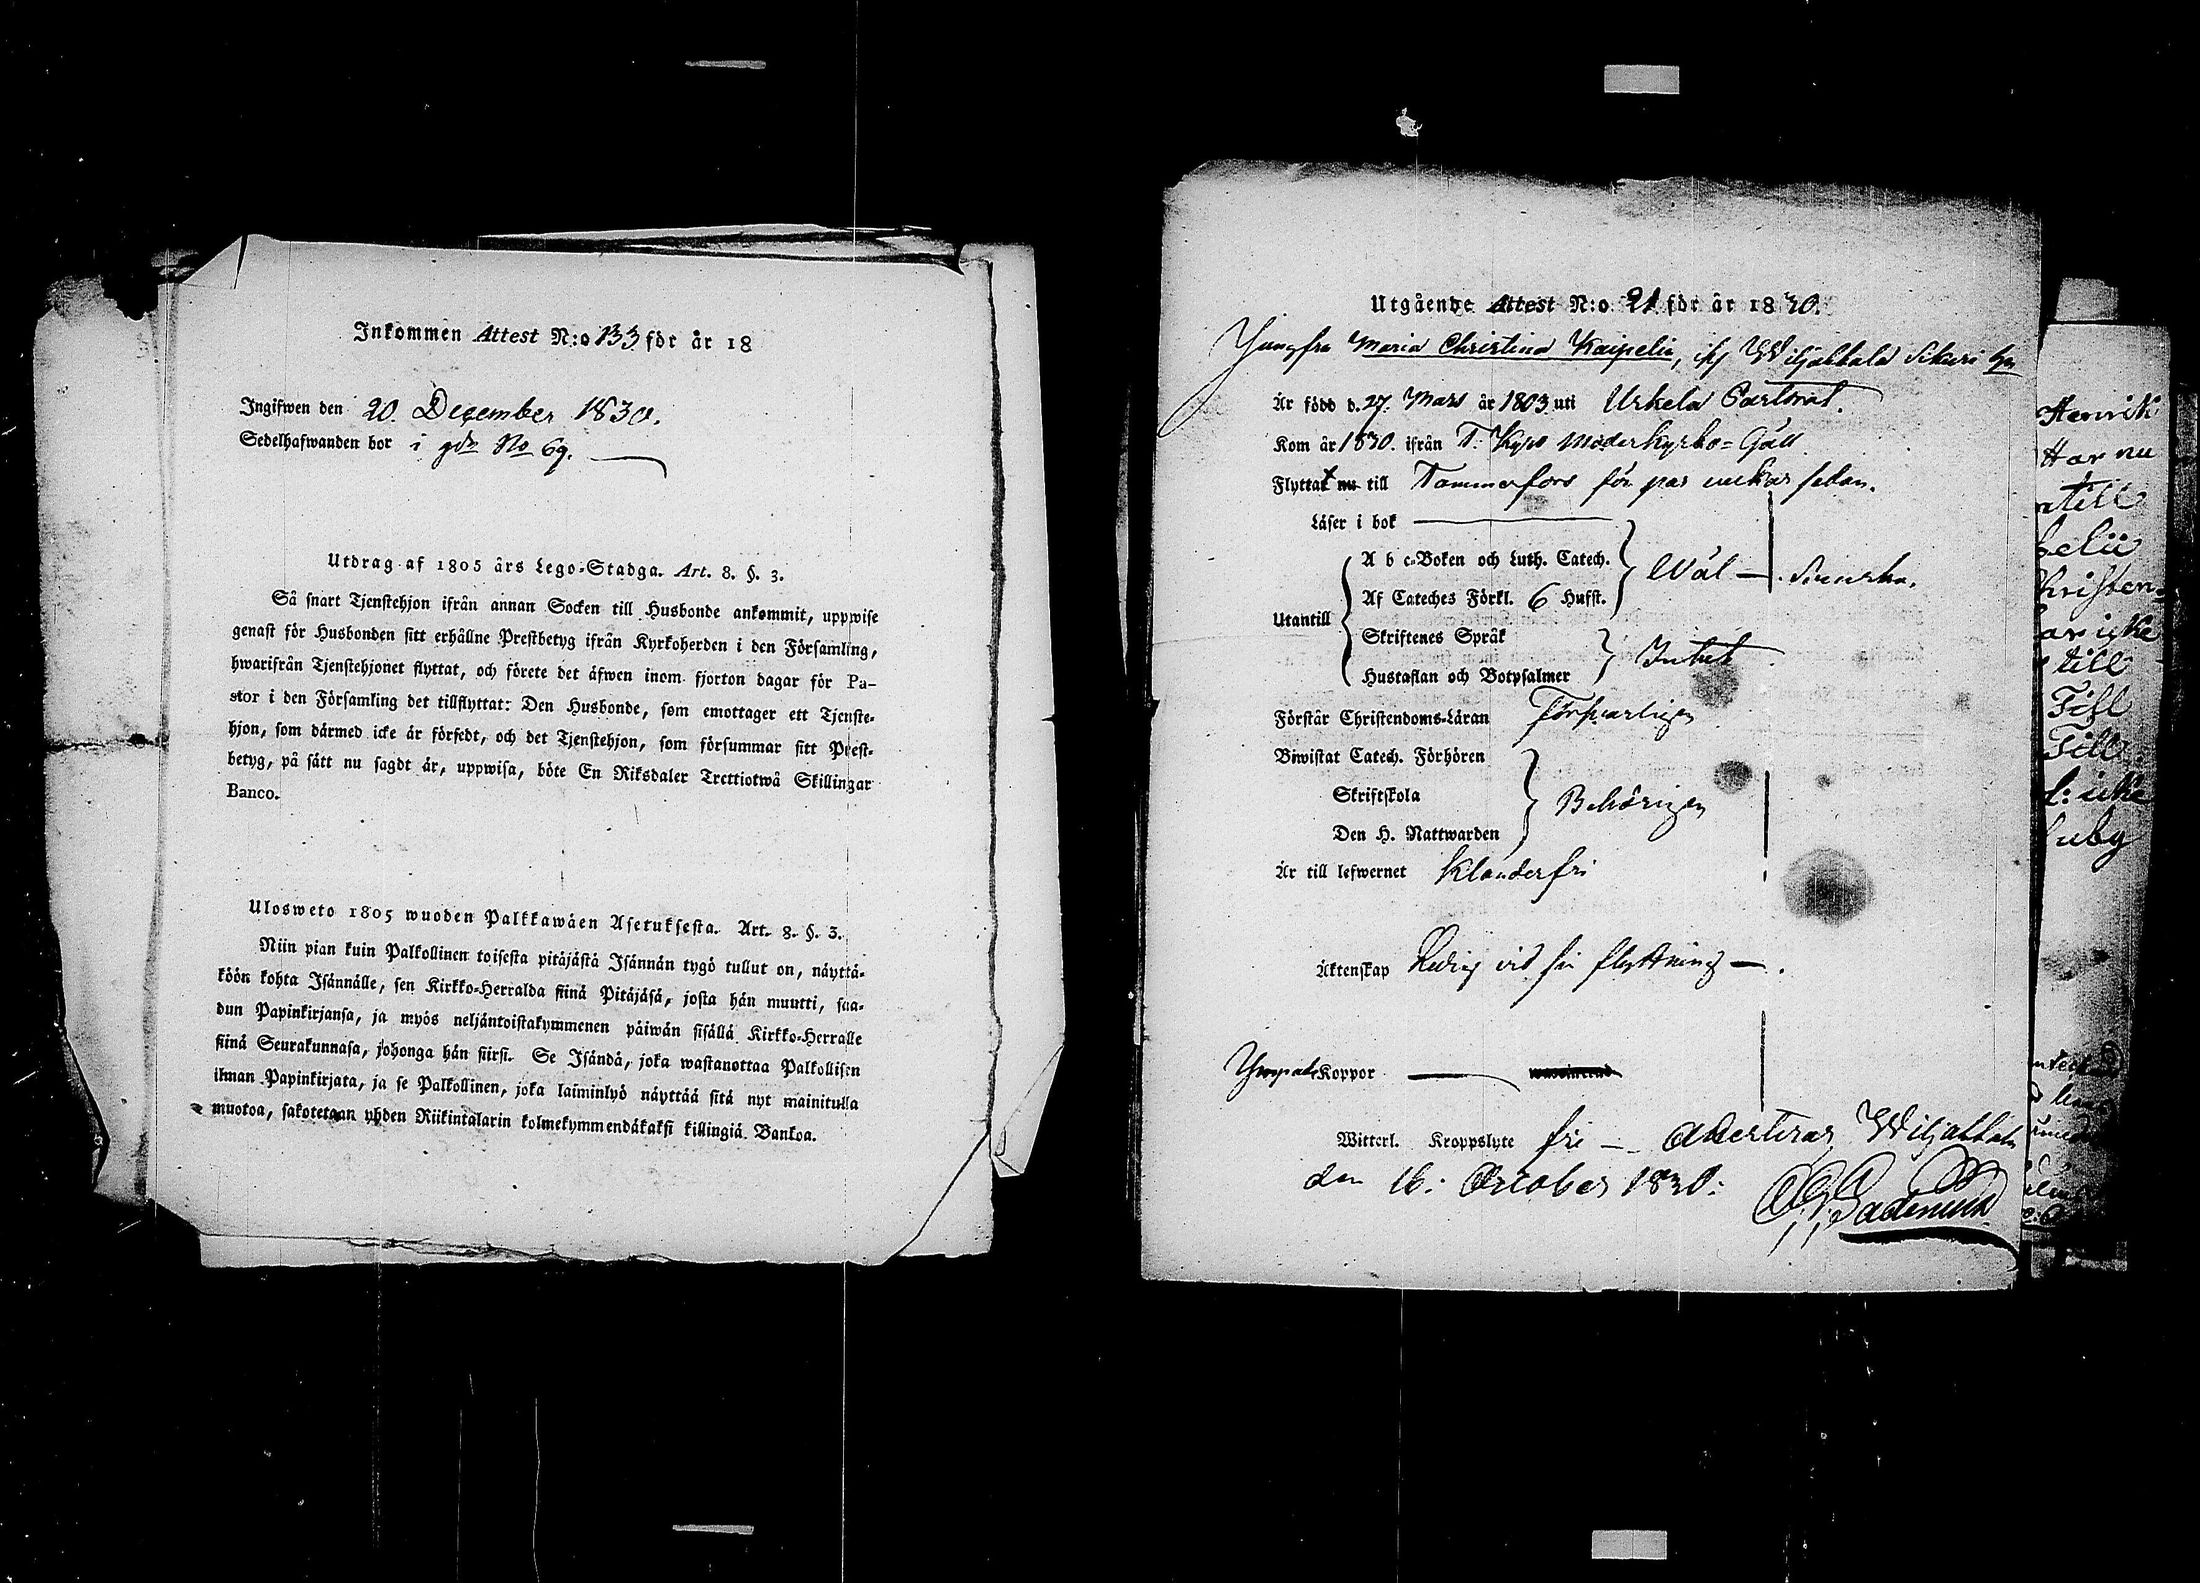 Inkommen Attest N:o 133 för år 18
Ingifwen den 20. December 1830.
Sedelhafwanden bor i gdn No 69.
Utdrag af 1805 års Lego-Stadga. Art. 8. §. 3.
Så snart Tjenstehjon ifrån annan Socken till Husbonde ankommit, uppwise
genast för Husbonden sitt erhållne Prestbetyg ifrån Kyrkoherden i den Församling,
hwarifrån Tjenstehjonet flyttat, och förete det äfwen inom fjorton dagar för Pa-
stor i den Församling det tillflyttat: Den Husbonde, som emottager ett Tjenste-
hjon, som därmed icke är försedt, och det Tjenstehjon, som försummar sitt Prest-
betyg, på sätt nu sagdt är, uppwisa, böte En Riksdaler Trettiotwå Skillingar
Banco.
Ulosweto 1805 wuoden Palkkawäen Asetuksesta. Art. 8. §. 3.
Niin pian kuin Palkollinen toisesta pitäjästä Isännän tygö tullut on, näyttä-
köön kohta Isännälle, sen Kirkko-Herralda siinä Pitäjäsä, josta hän muutti, saa-
dun Papinkirjansa, ja myös neljäntoistakymmenen päiwän sisällä Kirkko-Herralle
siinä Seurakunnasa, johonga hän siirsi. Se Isändä, joka wastanottaa Palkollisen
ilman Papinkirjata, ja se Palkollinen, joka laiminlyö näyttää sitä nyt mainitulla
muotoa, sakotetaan yhden Riikintalarin kolmekymmendäkaksi killingiä Bankoa.
Utgående Attest N:o 21 för år 1830.
Jungfru Maria Christina Kaipelin, ifrån Wiljakkala
Är född d. 27. Mars år 1803 uti Urkela Pastorat.
Kom år 1830. ifrån T. Kyro Moderkyrko-Gäll
Flyttat nu till Tammerfors för par weckor sedan.
Läser i bok
A b c-Boken och Luth. Catech.
Af Cateches Förkl. 6 Hufst.
Wäl — . Svenska.
Utantill
Skriftenes Språk
Hustaflan och Botpsalmer
Intet
Förstår Christendoms-Läran Försvarligen
Biwistat Catech. Förhören
Skriftskola
Den H. Nattwarden
Behörigen
Är till lefwernet Klanderfri
Äktenskap Ledig vid sin flyttning — .
Ympade Koppor
Witterl. Kroppslyte fri — Attesterar, Wiljakkala
den 16: October 1830:
Henrik
Har nu
till
Christen-
ar icke
till
Till
icke